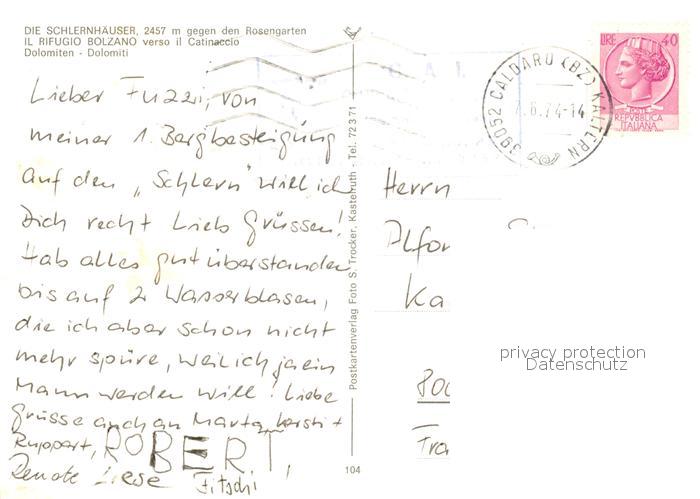 DIE SCHLERNHÄUSER, 2457 m gegen den Rosengarten
IL RIFUGIO BOLZANO verso il Catinaccio
Dolomiten - Dolomiti
Lieber Fuzzi, von
meiner 1. Bergbesteigung
auf den "Schlern" will ich
Dich recht lieb grüssen!
Hab alles gut überstanden
bis auf 2 Wasserblasen,
die ich aber schon nicht
mehr spüre, weil ich ja ein
Mann werden will! Liebe
Grüsse auch an Marta, Kersti +
Ruppert, ROBERT,
Renate Fitschi
Postkartenverlag Foto S. Trocker, Kastelruth - Tel. 72371
104
C.A.I.
39052 CALDARO (BZ) KALTERN
7.8.74-14
LIRE 40
POSTE
REPVBBLICA
ITALIANA
Herrn
Alfon
Ka
800
privacy protection
Datenschutz